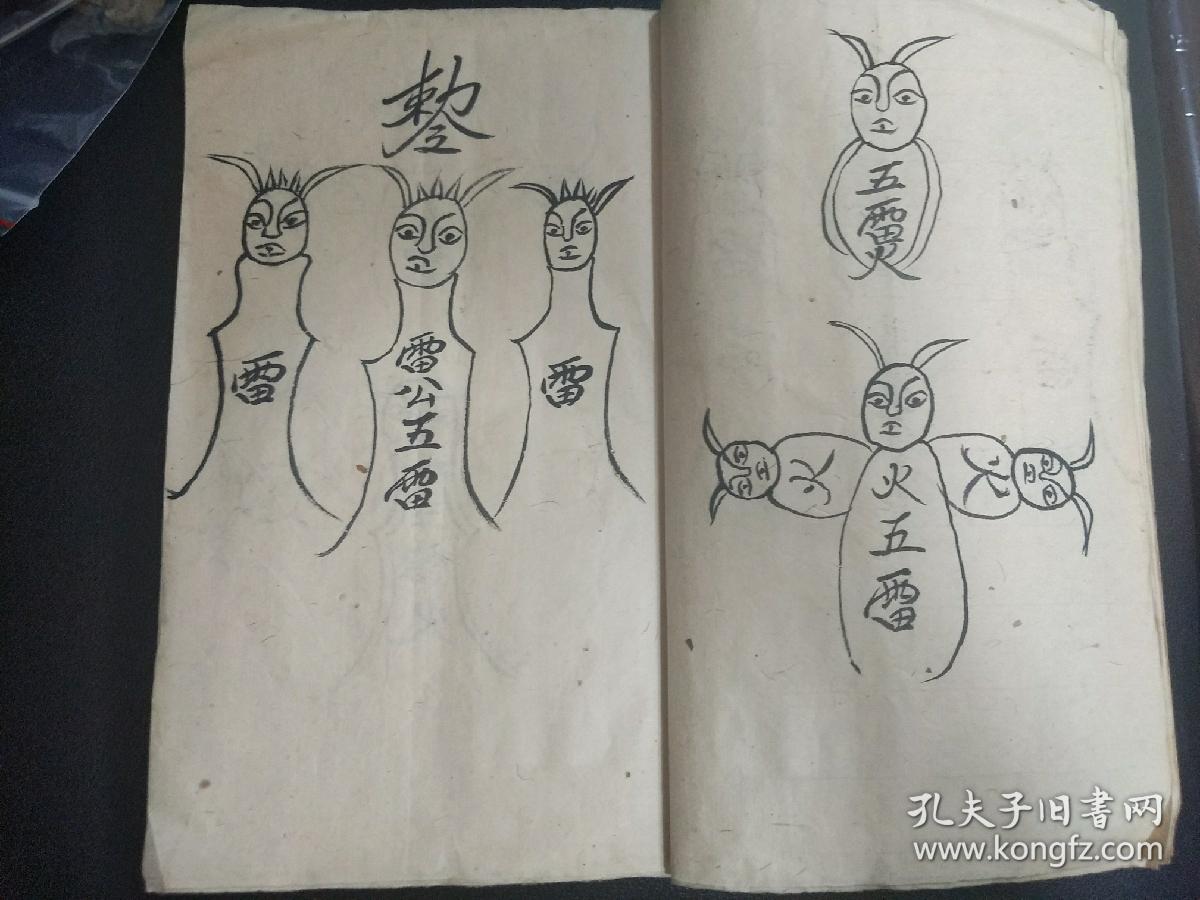 敕令
雷公五雷
雷
雷
五雷火
火五雷
火
火
孔夫子旧書网
www.kongfz.com